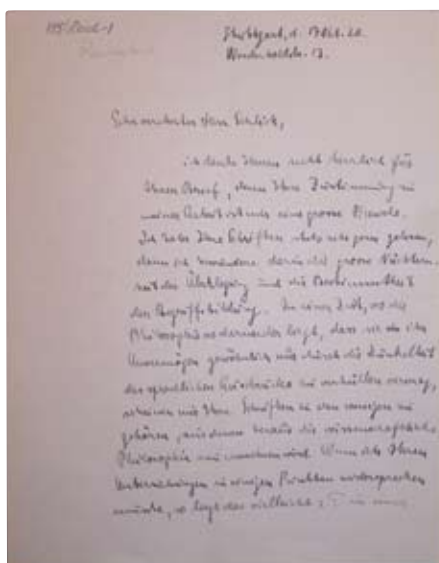 Stuttgart, d. 17. Okt. 20.
13.
Sehr verehrter Herr Schlick,
ich danke Ihnen recht herzlich für
Ihren Brief, denn Ihre Zustimmung zu
meiner Arbeit ist mir eine grosse Freude.
Ich habe Ihre Schriften stets sehr gern gelesen,
denn ich bewundere darin die grosse Nüchtern-
der Überlegung und die Bestimmtheit
der Begriffsbildung. In einer Zeit, wo die
Philosophie so darnieder liegt, dass sie ihr
Unvermögen gewöhnlich nur durch die Dunkelheit
des sprachlichen Ausdrucks zu verhüllen vermag,
scheinen mir Ihre Schriften zu den wenigen zu
gehören, aus denen heraus die wissenschaftliche
Philosophie neu erwachsen wird. Wenn ich Ihren
Untersuchungen in einigen Punkten widersprechen
musste, so liegt das vielleicht